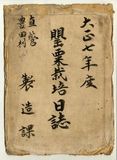 大正七年度
罌粟栽培日誌
直営
豊田村
製造課